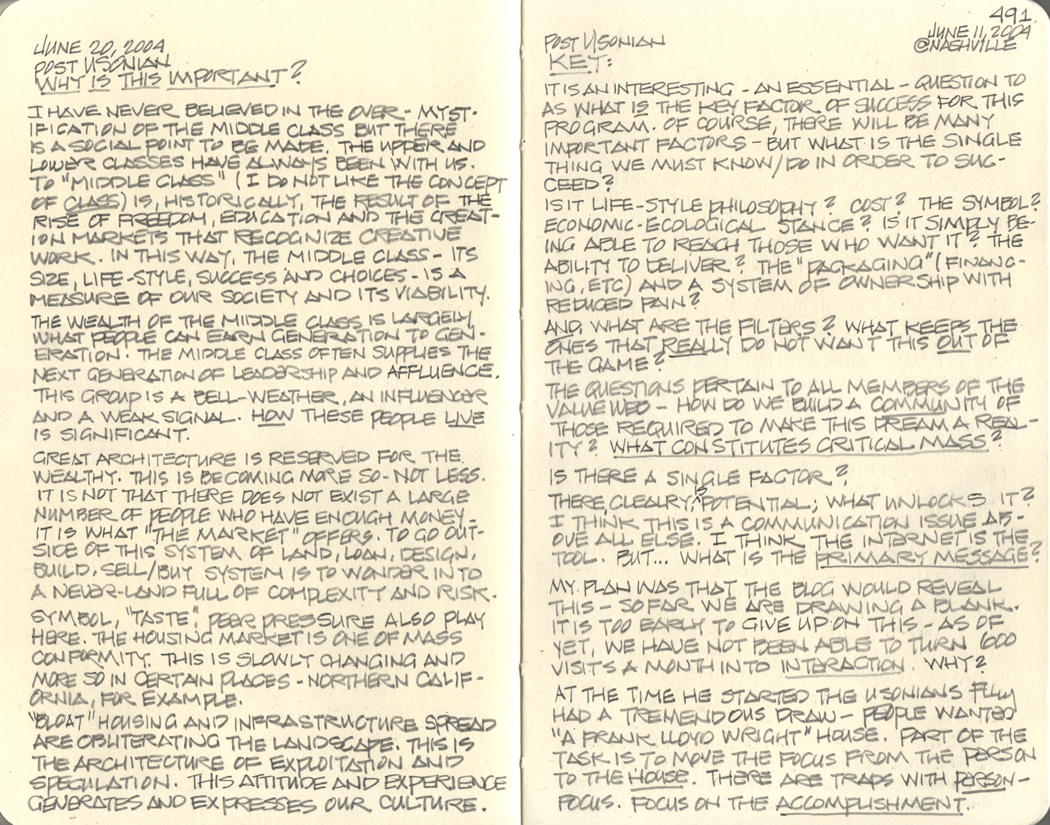 JUNE 20, 2004
POST USONIAN
WHY IS THIS IMPORTANT?
I HAVE NEVER BELIEVED IN THE OVER - MYST-
IFICATION OF THE MIDDLE CLASS BUT THERE
IS A SOCIAL POINT TO BE MADE. THE UPPER AND
LOWER CLASSES HAVE ALWAYS BEEN WITH US.
TO "MIDDLE CLASS" (I DO NOT LIKE THE CONCEPT
OF CLASS) IS, HISTORICALLY, THE RESULT OF THE
RISE OF FREEDOM, EDUCATION AND THE CREAT-
ION MARKETS THAT RECOGNIZE CREATIVE
WORK. IN THIS WAY, THE MIDDLE CLASS - ITS
SIZE, LIFE-STYLE, SUCCESS AND CHOICES - IS A
MEASURE OF OUR SOCIETY AND ITS VIABILITY.
THE WEALTH OF THE MIDDLE CLASS IS LARGELY
WHAT PEOPLE CAN EARN GENERATION TO GEN-
ERATION. THE MIDDLE CLASS OFTEN SUPPLIES THE
NEXT GENERATION OF LEADERSHIP AND AFFLUENCE.
THIS GROUP IS A BELL-WEATHER, AN INFLUENCER
AND A WEAK SIGNAL. HOW THESE PEOPLE LIVE
IS SIGNIFICANT.
GREAT ARCHITECTURE IS RESERVED FOR THE
WEALTHY. THIS IS BECOMING MORE SO - NOT LESS.
IT IS NOT THAT THERE DOES NOT EXIST A LARGE
NUMBER OF PEOPLE WHO HAVE ENOUGH MONEY -
IT IS WHAT "THE MARKET" OFFERS. TO GO OUT-
SIDE OF THIS SYSTEM OF LAND, LOAN, DESIGN,
BUILD, SELL/BUY SYSTEM IS TO WONDER IN TO
A NEVER-LAND FULL OF COMPLEXITY AND RISK.
SYMBOL, "TASTE", PEER PRESSURE ALSO PLAY
HERE. THE HOUSING MARKET IS ONE OF MASS
CONFORMITY. THIS IS SLOWLY CHANGING AND
MORE SO IN CERTAIN PLACES - NORTHERN CALIF-
ORNIA, FOR EXAMPLE.
"BLOAT" HOUSING AND INFRASTRUCTURE SPREAD
ARE OBLITERATING THE LANDSCAPE. THIS IS
THE ARCHITECTURE OF EXPLOITATION AND
SPECULATION. THIS ATTITUDE AND EXPERIENCE
GENERATES AND EXPRESSES OUR CULTURE.
491.
JUNE 11, 2004
@NASHVILLE
POST USONIAN
KEY:
IT IS AN INTERESTING - AN ESSENTIAL - QUESTION TO
AS WHAT IS THE KEY FACTOR OF SUCCESS FOR THIS
PROGRAM. OF COURSE, THERE WILL BE MANY
IMPORTANT FACTORS - BUT WHAT IS THE SINGLE
THING WE MUST KNOW/DO IN ORDER TO SUC-
CEED?
IS IT LIFE-STYLE PHILOSOPHY? COST? THE SYMBOL?
ECONOMIC-ECOLOGICAL STANCE? IS IT SIMPLY BE-
ING ABLE TO REACH THOSE WHO WANT IT? THE
ABILITY TO DELIVER? THE "PACKAGING" (FINANC-
ING, ETC) AND A SYSTEM OF OWNERSHIP WITH
REDUCED PAIN?
AND, WHAT ARE THE FILTERS? WHAT KEEPS THE
ONES THAT REALLY DO NOT WANT THIS OUT OF
THE GAME?
THE QUESTIONS PERTAIN TO ALL MEMBERS OF THE
VALUE WEB - HOW DO WE BUILD A COMMUNITY OF
THOSE REQUIRED TO MAKE THIS DREAM A REAL-
ITY? WHAT CONSTITUTES CRITICAL MASS?
IS THERE A SINGLE FACTOR?
THERE, CLEALRY, IS POTENTIAL; WHAT UNLOCKS IT?
I THINK THIS IS A COMMUNICATION ISSUE AB-
OVE ALL ELSE. I THINK THE INTERNET IS THE
TOOL. BUT... WHAT IS THE PRIMARY MESSAGE?
MY PLAN WAS THAT THE BLOG WOULD REVEAL
THIS - SO FAR WE ARE DRAWING A BLANK.
IT IS TOO EARLY TO GIVE UP ON THIS - AS OF
YET, WE HAVE NOT BEEN ABLE TO TURN 600
VISITS A MONTH INTO INTERACTION. WHY?
AT THE TIME HE STARTED THE USONIANS FLLW
HAD A TREMENDOUS DRAW - PEOPLE WANTED
"A FRANK LLOYD WRIGHT" HOUSE. PART OF THE
TASK IS TO MOVE THE FOCUS FROM THE PERSON
TO THE HOUSE. THERE ARE TRAPS WITH PERSON-
FOCUS. FOCUS ON THE ACCOMPLISHMENT.